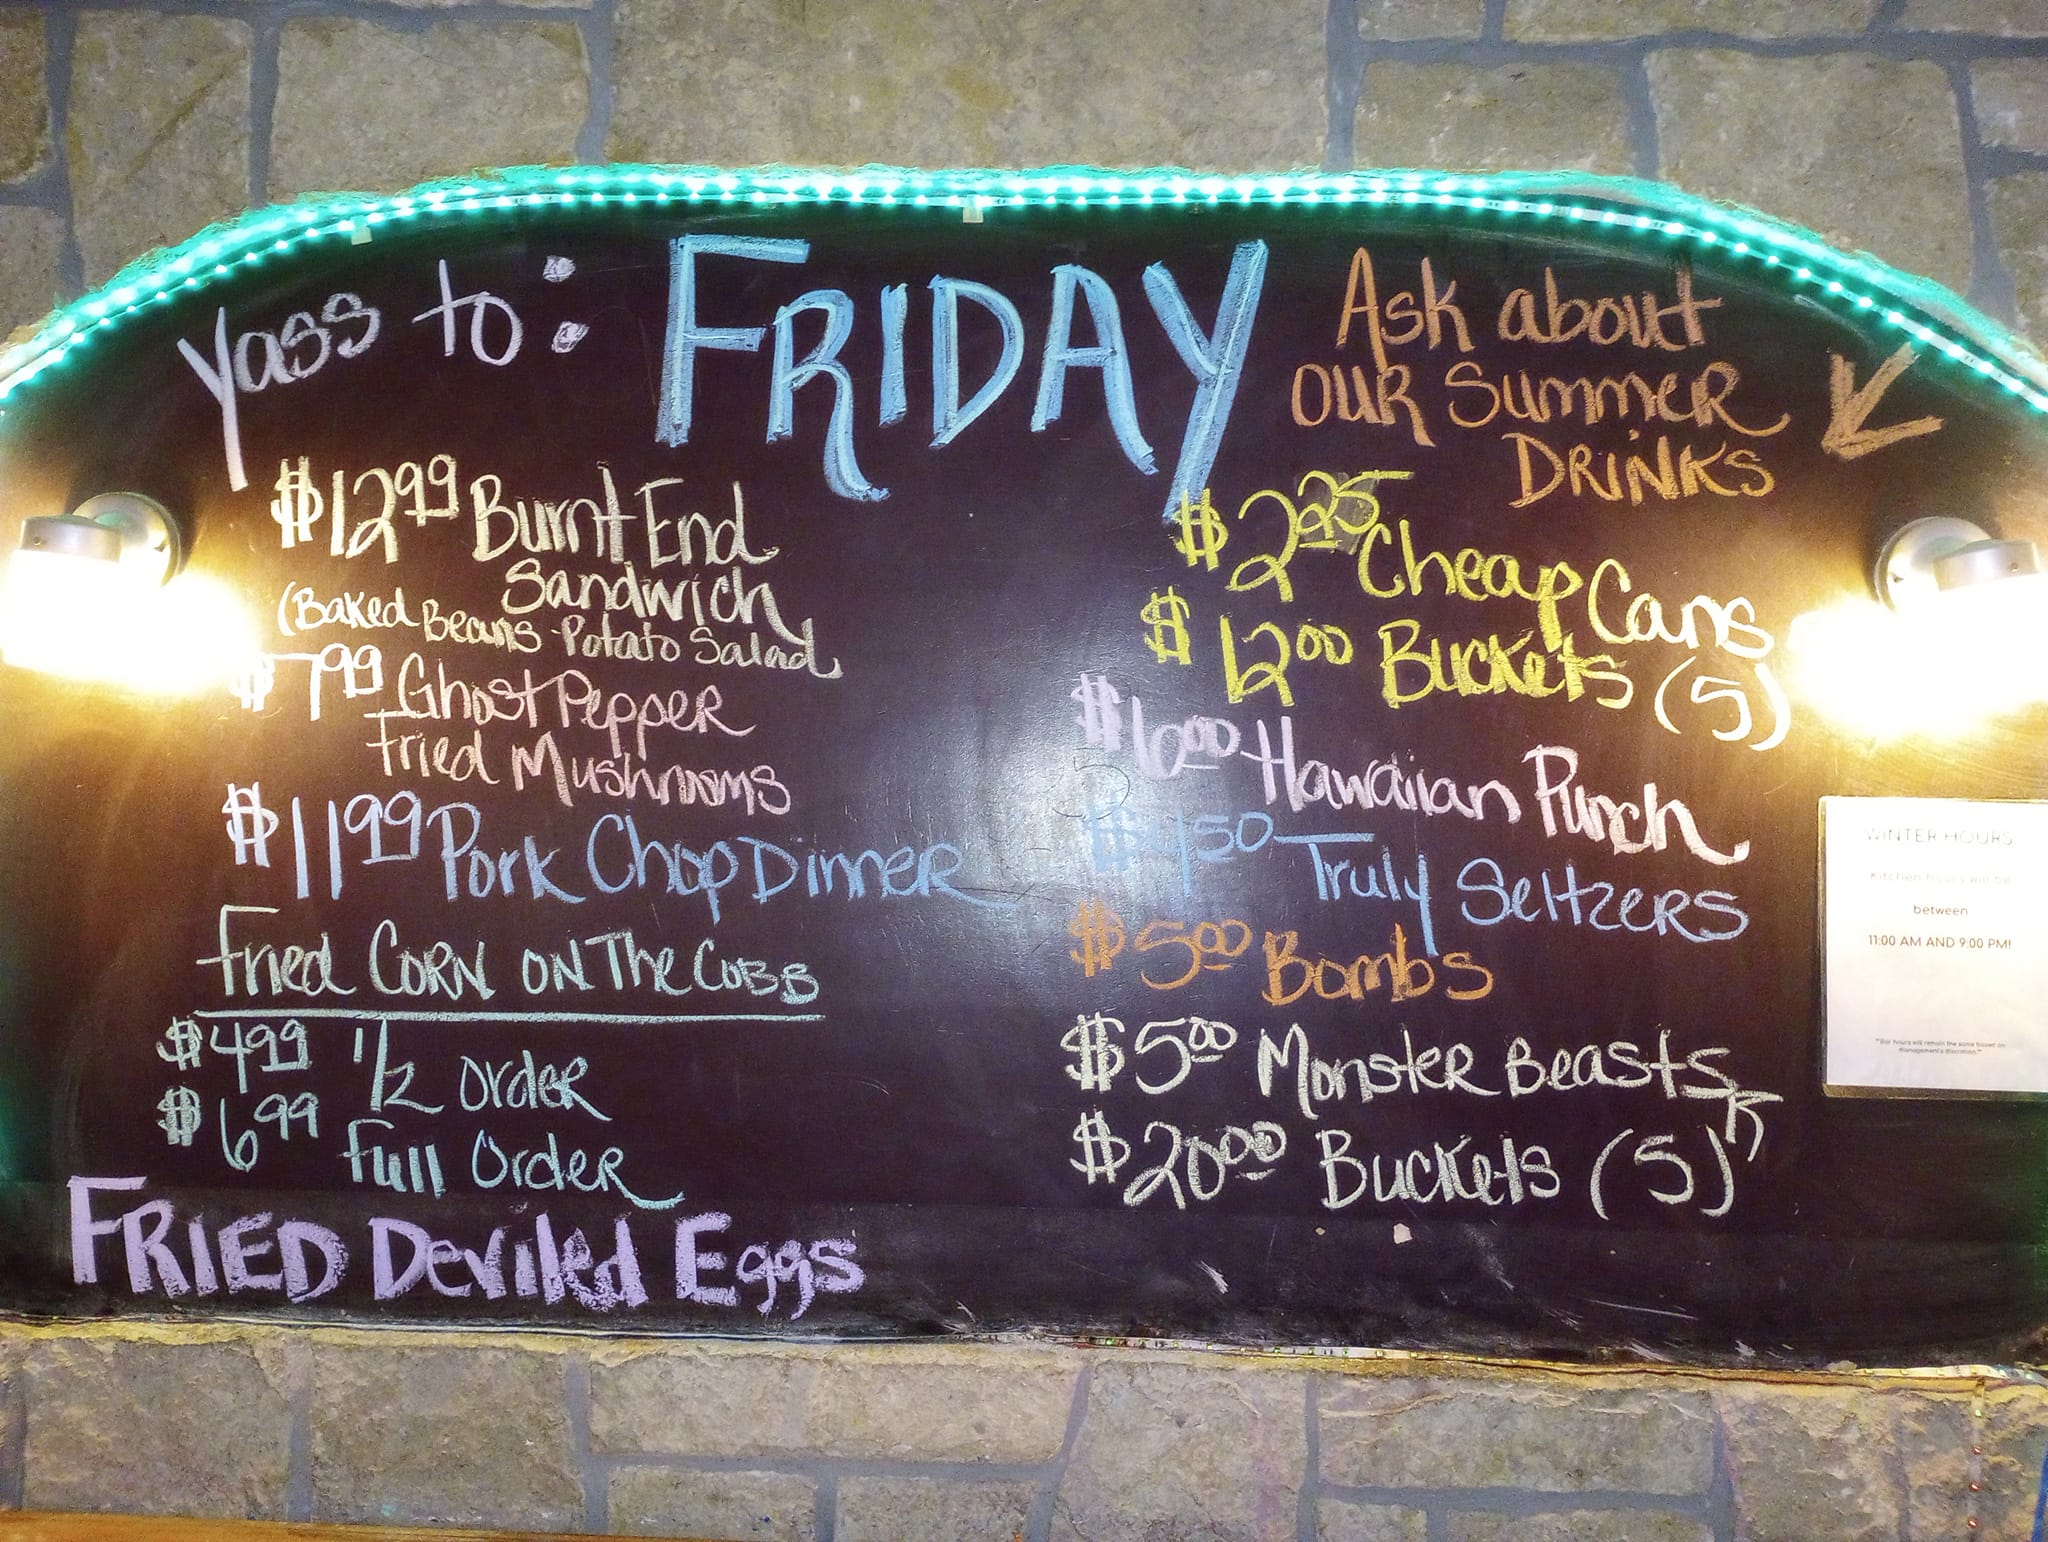 Yass to: FRIDAY
Ask about
OUR Summer
DRINKS
$12.99 Burnt End
Sandwich
(Baked Beans Potato Salad
$7.99 Ghost Pepper
Fried Mushrooms
$11.99 Pork Chop Dinner
Fried CORN ON The COBB
$4.99 1/2 Order
$6.99 Full Order
FRIED Deviled Eggs
$2.25 Cheap Cans
$12.00 Buckets (5)
$6.00 Hawaiian Punch
Truly Seltzers
$5.00 Bombs
$5.00 Monster Beasts
$20.00 Buckets (5)
WINTER HOURS
Kitchen hours will be
between
11:00 AM AND 9:00 PM!
**Bar hours will remain the same based on
management's discretion.**